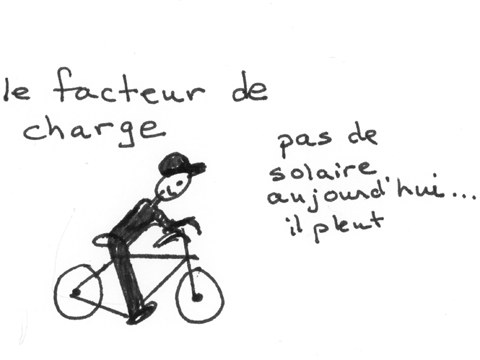 le facteur de
charge
pas de
solaire
aujourd'hui...
il pleut